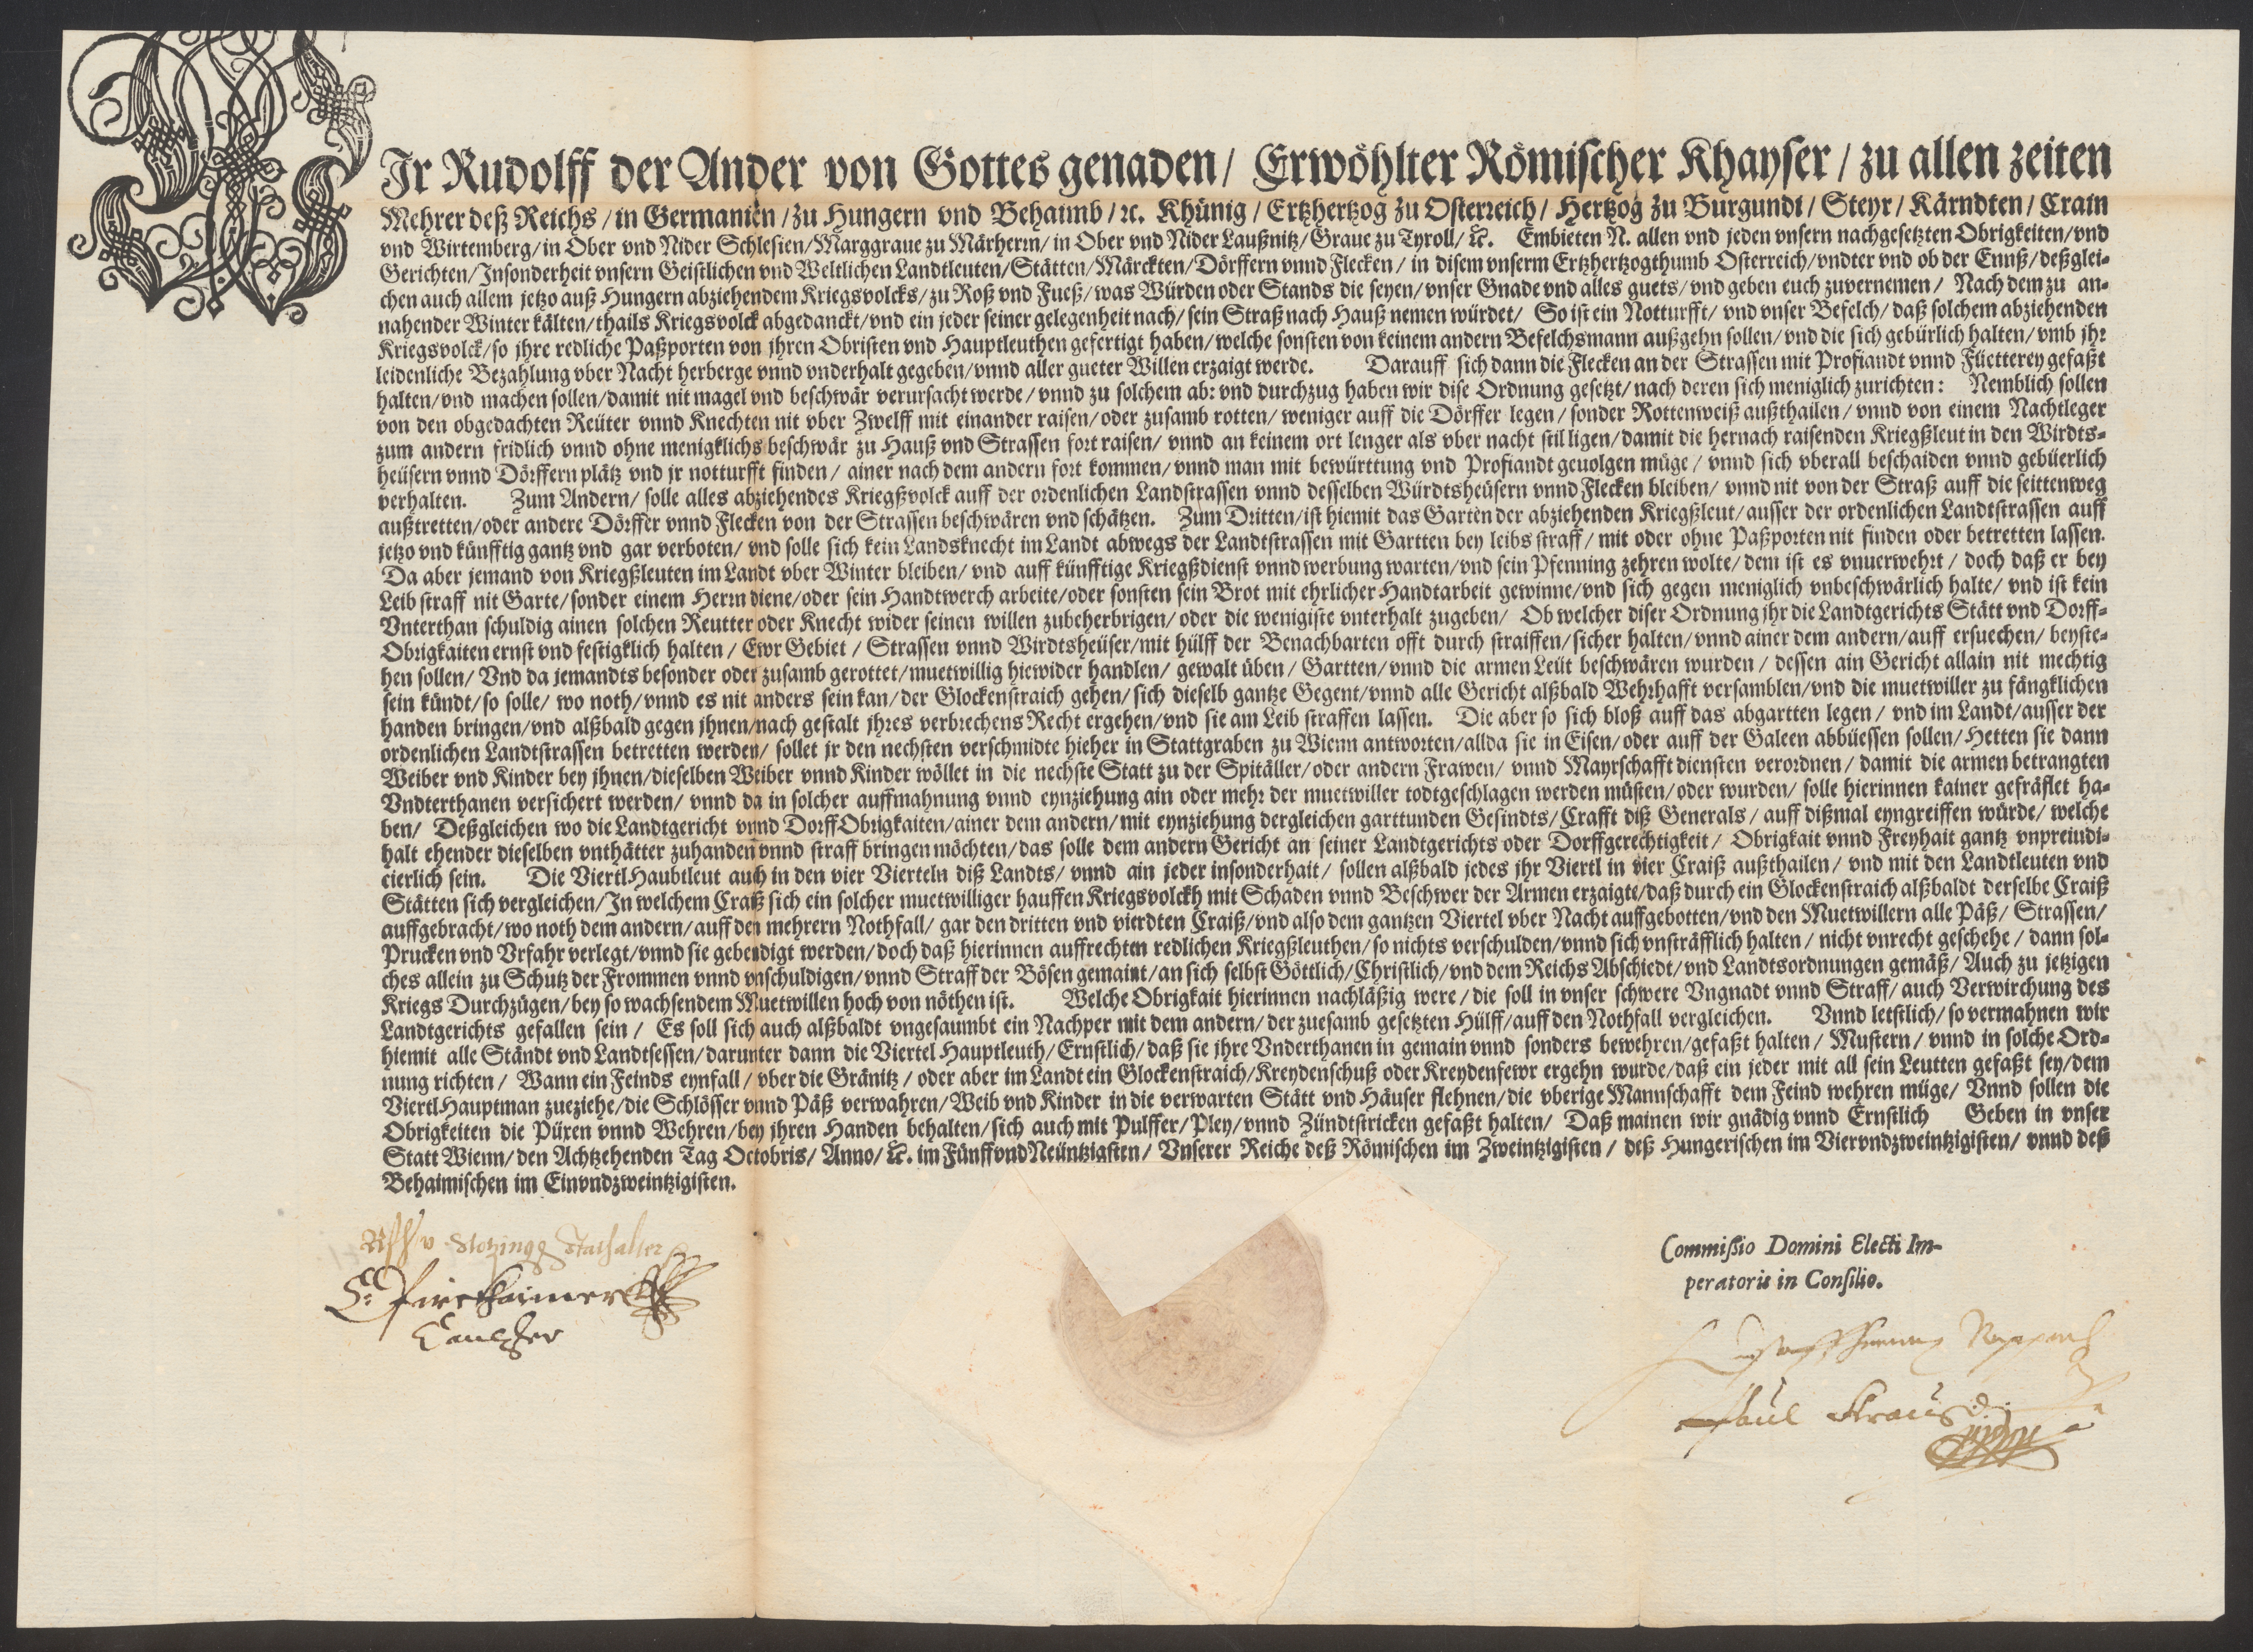 WIr Rudolff der Ander von Gottes genaden/ Erwöhlter Römischer Khayser/ zu allen zeiten
Mehrer deß Reichs/ in Germanien/ zu Hungern vnd Behaimb/ ꝛc. Khünig/ Ertzhertzog zu Osterreich/ Hertzog zu Burgundi/ Steyr/ Kärndten/ Crain
vnd Wirtemberg/ in Ober vnd Nider Schlesien/ Marggraue zu Märhern/ in Ober vnd Nider Laußnitz/ Graue zu Tyroll/ ꝛc. Embieten N. allen vnd jeden vnsern nachgesetzten Obrigkeiten/ vnd
Gerichten/ Insonderheit vnsern Geistlichen vnd Weltlichen Landtleuten/ Stätten/ Märckten/ Dörffern vnnd Flecken/ in disem vnserm Ertzhertzogthumb Osterreich/ vndter vnd ob der Ennß/ deßglei-
chen auch allem jetzo auß Hungern abziehendem Kriegsvolcks/ zu Roß vnd Fueß/ was Würden oder Stands die seyen/ vnser Gnade vnd alles guets/ vnd geben euch zuvernemen/ Nach dem zu an-
nahender Winter kälten/ thails Kriegsvolck abgedanckt/ vnd ein jeder seiner gelegenheit nach/ sein Straß nach Hauß nemen würdet/ So ist ein Notturfft/ vnd vnser Befelch/ daß solchem abziehenden
Kriegsvolck/ so jhre redliche Paßporten von jhren Obristen vnd Hauptleuthen gefertigt haben/ welche sonsten von keinem andern Befelchsmann außgehn sollen/ vnd die sich gebürlich halten/ vmb jhr
leidenliche Bezahlung vber Nacht herberge vnnd vnderhalt gegeben/ vnnd aller gueter Willen erzaigt werde. Darauff sich dann die Flecken an der Strassen mit Profiandt vnnd Füetterey gefaßt
halten/ vnd machen sollen/ damit nit magel vnd beschwär verursacht werde/ vnnd zu solchem ab: vnd durchzug haben wir dise Ordnung gesetzt/ nach deren sich meniglich zurichten: Nemblich sollen
von den obgedachten Reüter vnnd Knechten nit vber Zwelff mit einander raisen/ oder zusamb rotten/ weniger auff die Dörffer legen/ sonder Rottenweiß außthailen/ vnnd von einem Nachtleger
zum andern fridlich vnnd ohne menigklichs beschwär zu Hauß vnd Strassen fort raisen/ vnnd an keinem ort lenger als vber nacht stil ligen/ damit die hernach raisenden Kriegßleut in den Wirdts-
heüsern vnnd Dörffern plätz vnd jr notturfft finden/ ainer nach dem andern fort kommen/ vnnd man mit bewürttung vnd Profiandt geuolgen müge/ vnnd sich vberall beschaiden vnnd gebüerlich
verhalten. Zum Andern/ solle alles abziehendes Kriegßvolck auff der ordenlichen Landstrassen vnnd desselben Würdtsheüsern vnnd Flecken bleiben/ vnnd nit von der Straß auff die seittenweg
außtretten/ oder andere Dörffer vnnd Flecken von der Strassen beschwären vnd schätzen. Zum Dritten/ ist hiemit das Garten der abziehenden Kriegßleut/ ausser der ordenlichen Landtstrassen auff
jetzo vnd künfftig gantz vnd gar verboten/ vnd solle sich kein Landsknecht im Landt abwegs der Landtstrassen mit Gartten bey leibs straff/ mit oder ohne Paßporten nit finden oder betretten lassen.
Da aber jemand von Kriegßleuten im Landt vber Winter bleiben/ vnd auff künfftige Kriegßdienst vnnd werbung warten/ vnd sein Pfenning zehren wolte/ dem ist es vnuerwehrt/ doch daß er bey
Leib straff nit Garte/ sonder einem Herrn diene/ oder sein Handtwerch arbeite/ oder sonsten sein Brot mit ehrlicher Handtarbeit gewinne/ vnd sich gegen meniglich vnbeschwärlich halte/ vnd ist kein
Vnterthan schuldig ainen solchen Reutter oder Knecht wider seinen willen zubeherbrigen/ oder die wenigiste vnterhalt zugeben/ Ob welcher diser Ordnung jhr die Landtgerichts Stätt vnd Dorff-
Obrigkaiten ernst vnd festigklich halten/ Ewr Gebiet/ Strassen vnnd Wirdtsheüser/ mit hülff der Benachbarten offt durch straiffen/ sicher halten/ vnnd ainer dem andern/ auff ersuechen/ beyste-
hen sollen/ Vnd da jemandts besonder oder zusamb gerottet/ muetwillig hiewider handlen/ gewalt üben/ Gartten/ vnnd die armen Leüt beschwären wurden/ dessen ain Gericht allain nit mechtig
sein kündt/ so solle/ wo noth/ vnnd es nit anders sein kan/ der Glockenstraich gehen/ sich dieselb gantze Gegent/ vnnd alle Gericht alßbald Wehrhafft versamblen/ vnd die muetwiller zu fängklichen
handen bringen/ vnd alßbald gegen jhnen/ nach gestalt jhres verbrechens Recht ergehen/ vnd sie am Leib straffen lassen. Die aber so sich bloß auff das abgartten legen/ vnd im Landt/ ausser der
ordenlichen Landtstrassen betretten werden/ sollet jr den nechsten verschmidte hieher in Stattgraben zu Wienn antworten/ allda sie in Eisen/ oder auff der Galeen abbüessen sollen/ Hetten sie dann
Weiber vnd Kinder bey jhnen/ dieselben Weiber vnnd Kinder wöllet in die nechste Statt zu der Spitäller/ oder andern Frawen/ vnnd Mayrschafft diensten verordnen/ damit die armen betrangten
Vndterthanen versichert werden/ vnnd da in solcher auffmahnung vnnd eynziehung ain oder mehr der muetwiller todtgeschlagen werden müsten/ oder wurden/ solle hierinnen kainer gefräflet ha-
ben/ Deßgleichen wo die Landtgericht vnnd Dorff Obrigkaiten/ ainer dem andern/ mit eynziehung dergleichen garttunden Gesindts/ Crafft diß Generals/ auff dißmal eyngreiffen würde/ welche
halt ehender dieselben vnthätter zuhanden vnnd straff bringen möchten/ das solle dem andern Gericht an seiner Landtgerichts oder Dorffgerechtigkeit/ Obrigkait vnnd Freyhait gantz vnpreiudi-
cierlich sein. Die Viertl Haubtleut auch in den vier Vierteln diß Landts/ vnnd ain jeder insonderhait/ sollen alßbald jedes jhr Viertl in vier Craiß außthailen/ vnd mit den Landtleuten vnd
Stätten sich vergleichen/ In welchem Craiß sich ein solcher muetwilliger hauffen Kriegsvolckh mit Schaden vnnd Beschwer der Armen erzaigte/ daß durch ein Glockenstraich alßbaldt derselbe Craiß
auffgebracht/ wo noth dem andern/ auff den mehrern Nothfall/ gar den dritten vnd vierdten Craiß/ vnd also dem gantzen Viertel vber Nacht auffgebotten/ vnd den Muetwillern alle Päß/ Strassen/
Prucken vnd Vrfahr verlegt/ vnnd sie gebendigt werden/ doch daß hierinnen auffrechten redlichen Kriegßleuthen/ so nichts verschulden/ vnnd sich vnsträfflich halten/ nicht vnrecht geschehe/ dann sol-
ches allein zu Schutz der Frommen vnnd vnschuldigen/ vnnd Straff der Bösen gemaint/ an sich selbst Göttlich/ Christlich/ vnd dem Reichs Abschiedt/ vnd Landtsordnungen gemäß/ Auch zu jetzigen
Kriegs Durchzügen/ bey so wachsendem Muetwillen hoch von nöthen ist. Welche Obrigkait hierinnen nachläßig were/ die soll in vnser schwere Vngnadt vnnd Straff/ auch Verwirchung des
Landtgerichts gefallen sein/ Es soll sich auch alßbaldt vngesaumbt ein Nachper mit dem andern/ der zuesamb gesetzten Hülff/ auff den Nothfall vergleichen. Vnnd letstlich/ so vermahnen wir
hiemit alle Ständt vnd Landtsessen/ darunter dann die Viertel Hauptleuth/ Ernstlich/ daß sie jhre Vnderthanen in gemain vnnd sonders bewehren/ gefaßt halten/ Mustern/ vnnd in solche Ord-
nung richten/ Wann ein Feinds eynfall/ vber die Gränitz/ oder aber im Landt ein Glockenstraich/ Kreydenschuß oder Kreydenfewr ergehn wurde/ daß ein jeder mit all sein Leutten gefaßt sey/ dem
Viertl Hauptman zueziehe/ die Schlösser vnnd Päß verwahren/ Weib vnd Kinder in die verwarten Stätt vnd Häuser flehnen/ die vberige Mannschafft dem Feind wehren müge/ Vnnd sollen die
Obrigkeiten die Püxen vnnd Wehren/ bey jhren Handen behalten/ sich auch mit Pulffer/ Pley/ vnnd Zündtstricken gefaßt halten/ Daß mainen wir gnädig vnnd Ernstlich Geben in vnser
Statt Wienn/ den Achtzehenden Tag Octobris/ Anno/ ꝛc. im Fünff vnd Neüntzigsten/ Vnserer Reiche deß Römischen im Zweintzigisten/ deß Hungerischen im Viervndzweintzigisten/ vnnd deß
Behaimischen im Einvndzweintzigisten.
v Stotzingen Stathalter
Pirckhaimer
Cantzler
Commißio Domini Electi Im-
peratoris in Consilio.
Paul Kraus